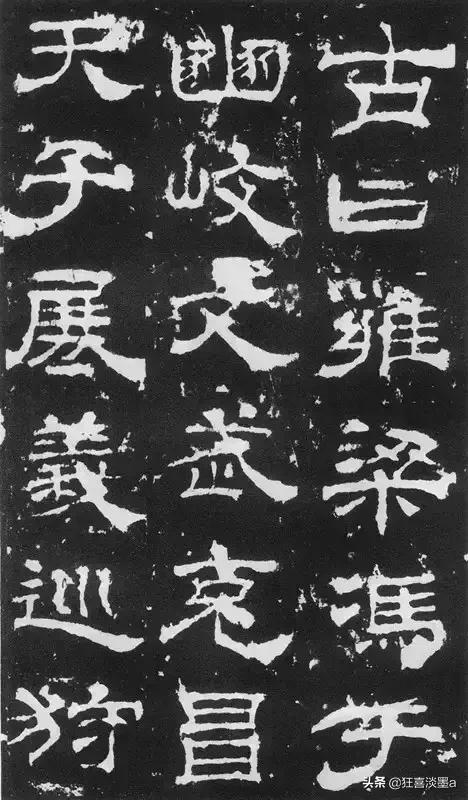 古曰雍梁馮于
豳岐文武克昌
天子展義巡狩
头条 @狂喜淡墨a